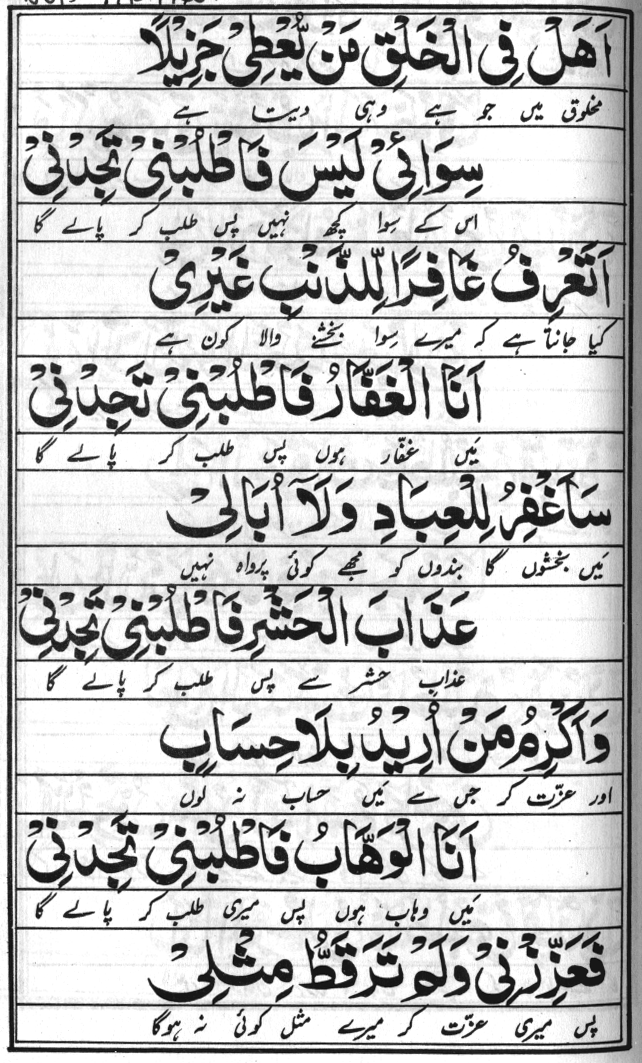 اَهَلْ فِی الْخَلْقِ مَنْ یُّعْطِیْ جَزِیْلًا
مخلوق میں جو ہے وہی دیتا ہے
سِوَائِیْ لَیْسَ فَاطْلُبْنِیْ تَجِدْنِیْ
اس کے سوا کچھ نہیں پس طلب کر پالے گا
اَتَعْرِفُ غَافِرًا لِّلذَّنْبِ غَیْرِیْ
کیا جانتا ہے کہ میرے سوا بخشنے والا کون ہے
اَنَا الْغَفَّارُ فَاطْلُبْنِیْ تَجِدْنِیْ
مَیں غفّار ہوں پس طلب کر پالے گا
سَاَغْفِرُ لِلْعِبَادِ وَلَآ اُبَالِیْ
مَیں بخشوں گا بندوں کو مجھے کوئی پرواہ نہیں
عَذَابَ الْحَشْرِ فَاطْلُبْنِیْ تَجِدْنِیْ
عذاب حشر سے پس طلب کر پالے گا
وَاَكْرِمُ مَنْ اُرِیْدُ بِلَا حِسَابٍ
اور عزّت کر جس سے مَیں حساب نہ لوں
اَنَا الْوَهَّابُ فَاطْلُبْنِیْ تَجِدْنِیْ
مَیں وہاب ہوں پس میری طلب کر پالے گا
فَعَزِّزْنِیْ وَلَمْ تَرَ قَطُّ مِثْلِیْ
پس میری عزّت کر میرے مثل کوئی نہ ہوگا